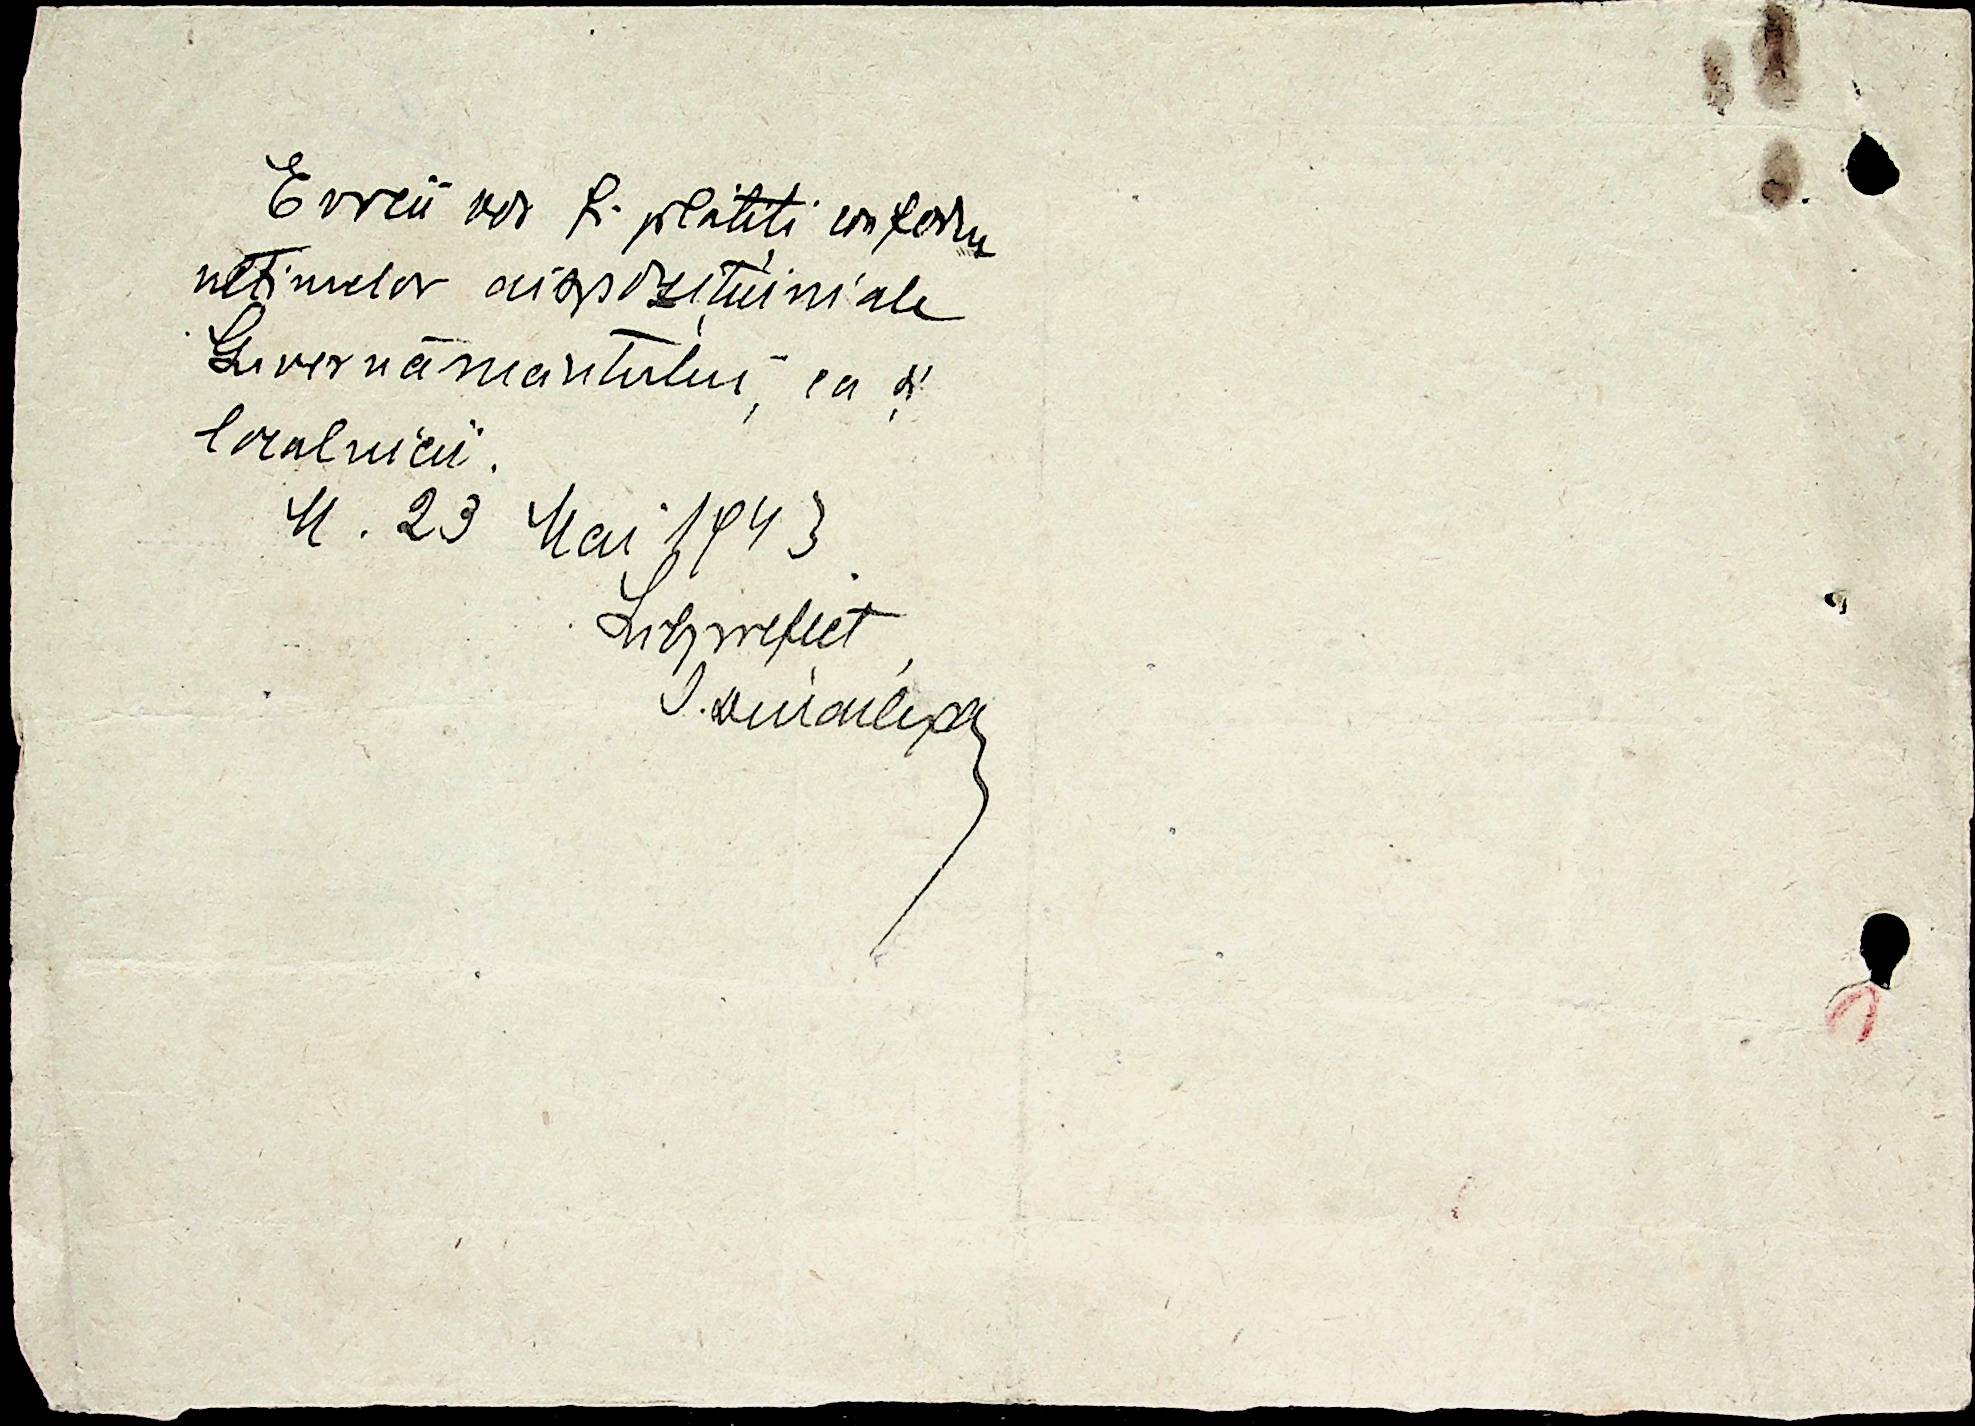 Evreii vor fi plătiți conform
ultimelor dispozițiuni ale
Guvernământului, ca și
localnicii.
M. 23 Mai 1943
Subprefect,